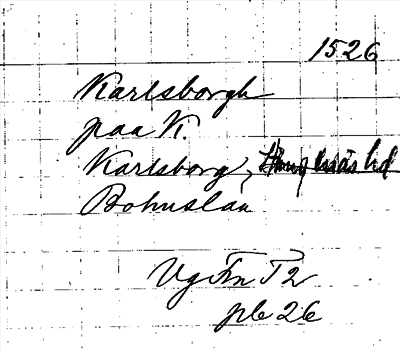 1526
Karlsborgh
paa K.
Karlsborg, hd
Bohuslän
VgFmT2
pb 26